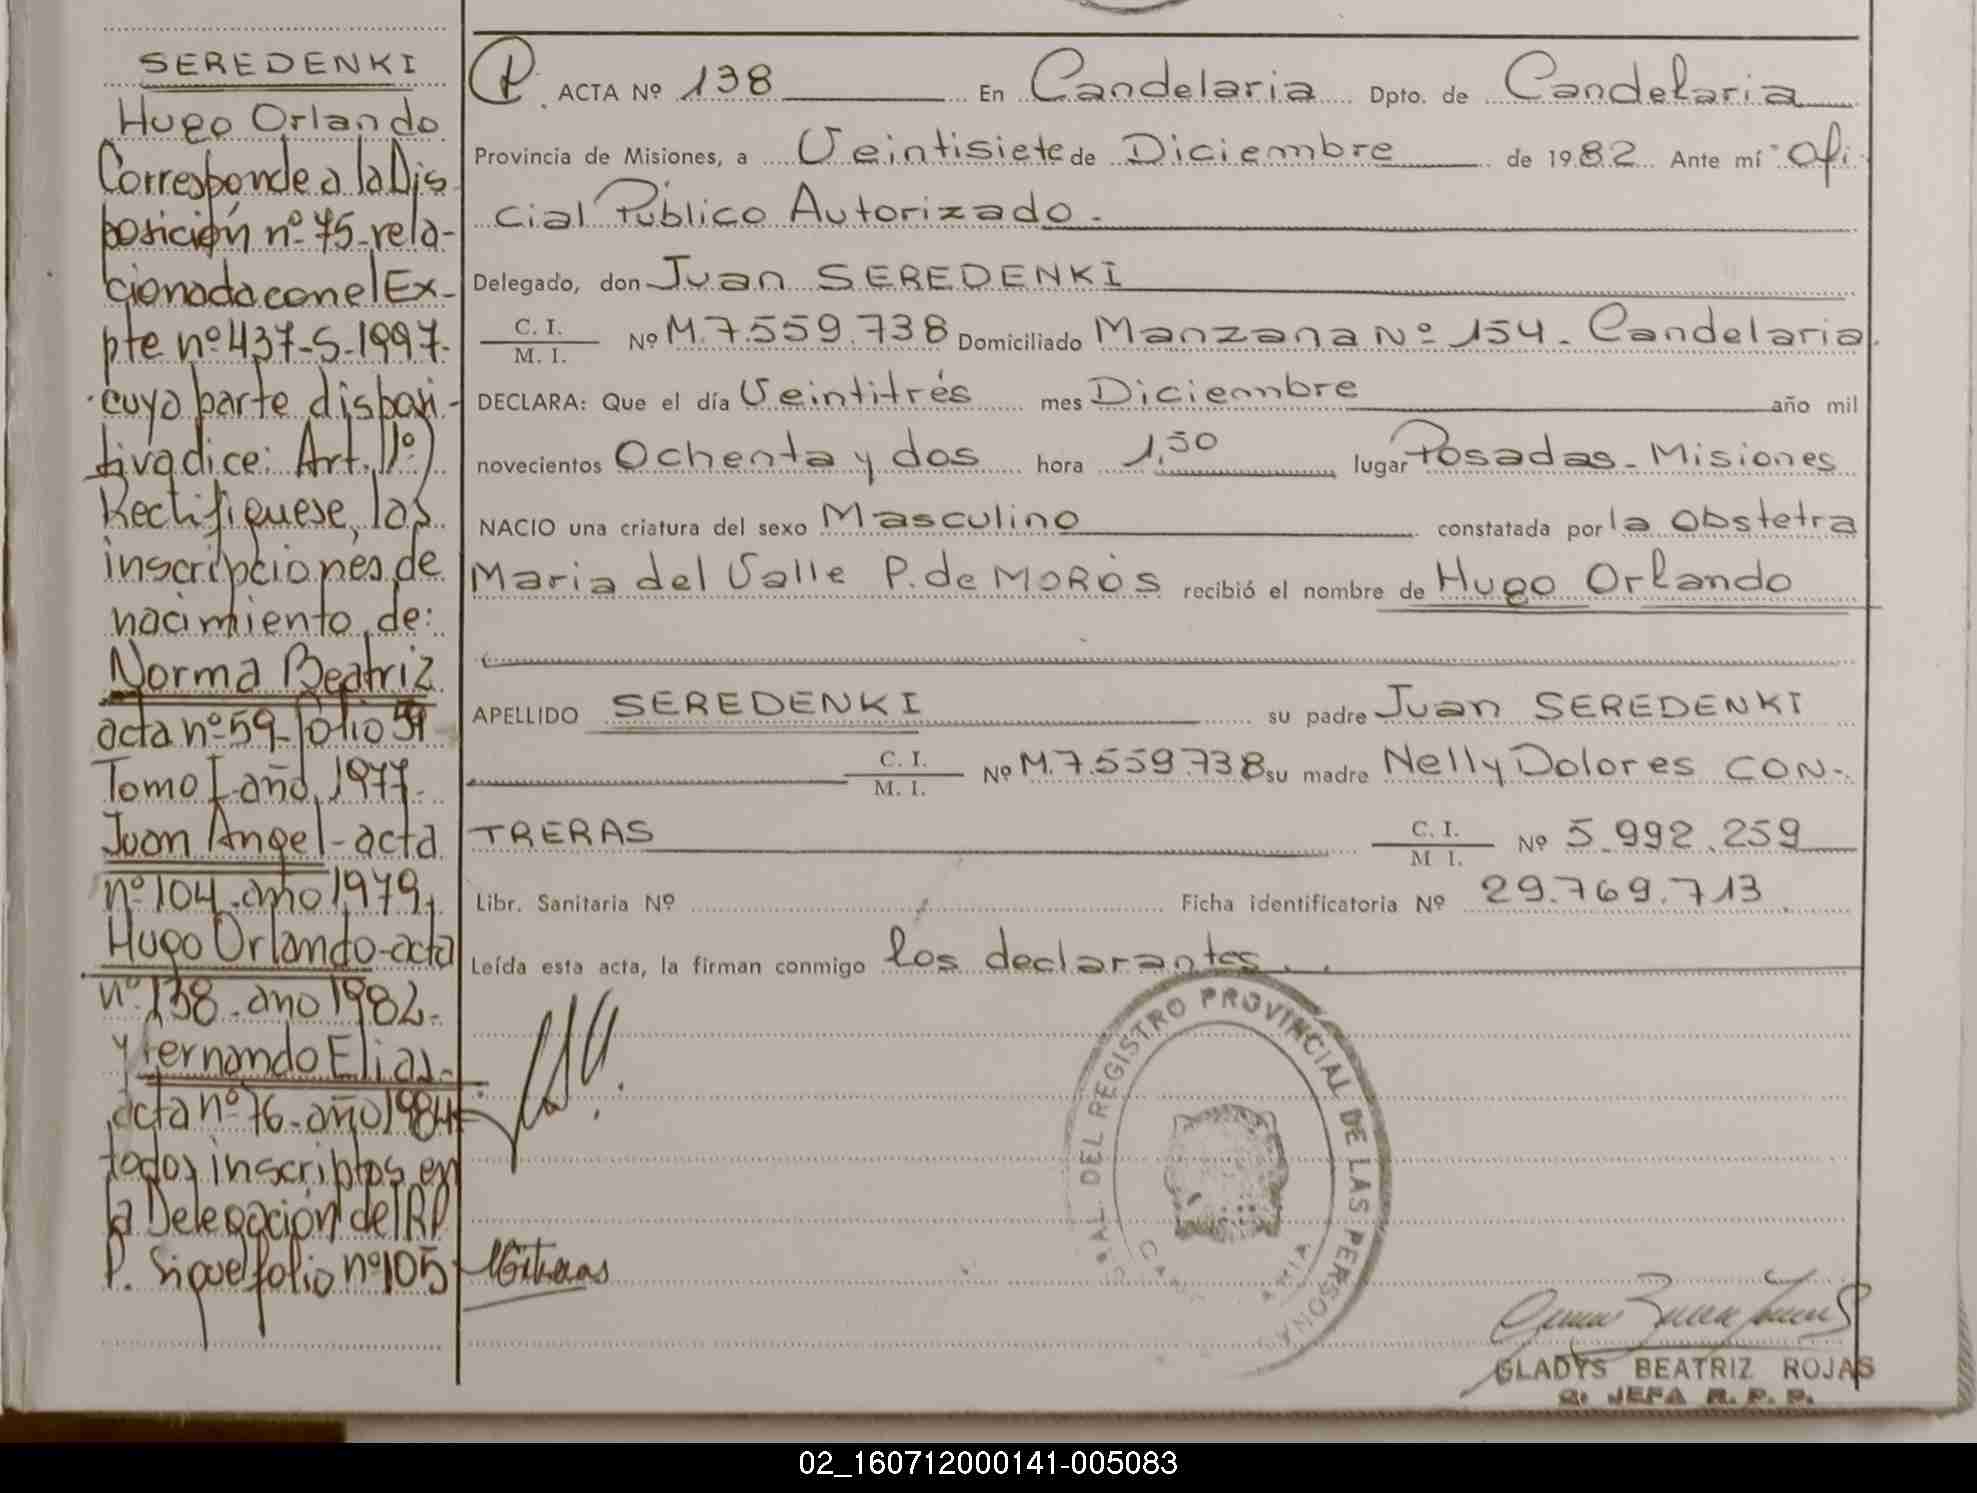 SEREDENKI
Hugo Orlando
Corresponde a la Dis
posición nº 75-rela-
cionada con el Ex-
pte nº 437-S-1997-
cuya parte disposi-
tiva dice: Art. 1º)
Rectifiquese, las
inscripciones de
nacimiento de:
Norma Beatriz
acta nº 59-folio 59
Tomo I año 1977-
Juan Angel-acta
nº 104-año 1979,
Hugo Orlando-acta
nº 138-año 1982-
y Fernando Elias-
acta nº 76-año 1984
todos inscriptos en
la Delegación del RP
P. Sigue folio nº 105
P. ACTA Nº 138 En Candelaria Dpto. de Candelaria
Provincia de Misiones, a Veintisiete de Diciembre de 1982 Ante mí Ofi
cial Público Autorizado.
Delegado, don Juan SEREDENKI
C. I.
M. I. Nº M.7.559.738 Domiciliado Manzana Nº 154. Candelaria.
DECLARA: Que el día Veintitrés mes Diciembre año mil
novecientos Ochenta y dos hora 1,50 lugar Posadas-Misiones
NACIO una criatura del sexo Masculino constatada por la Obstetra
Maria del Valle P. de MOROS recibió el nombre de Hugo Orlando
APELLIDO SEREDENKI su padre Juan SEREDENKI
C. I.
M. I. Nº M.7.559.738 su madre Nelly Dolores CON-
TRERAS C. I.
M I. Nº 5.992.259
Libr. Sanitaria Nº Ficha identificatoria Nº 29.769.713
Leída esta acta, la firman conmigo los declarantes.
AL DEL REGISTRO PROVINCIAL DE LAS PERSONAS
GLADYS BEATRIZ ROJAS
JEFA R. P. P.
02_160712000141-005083